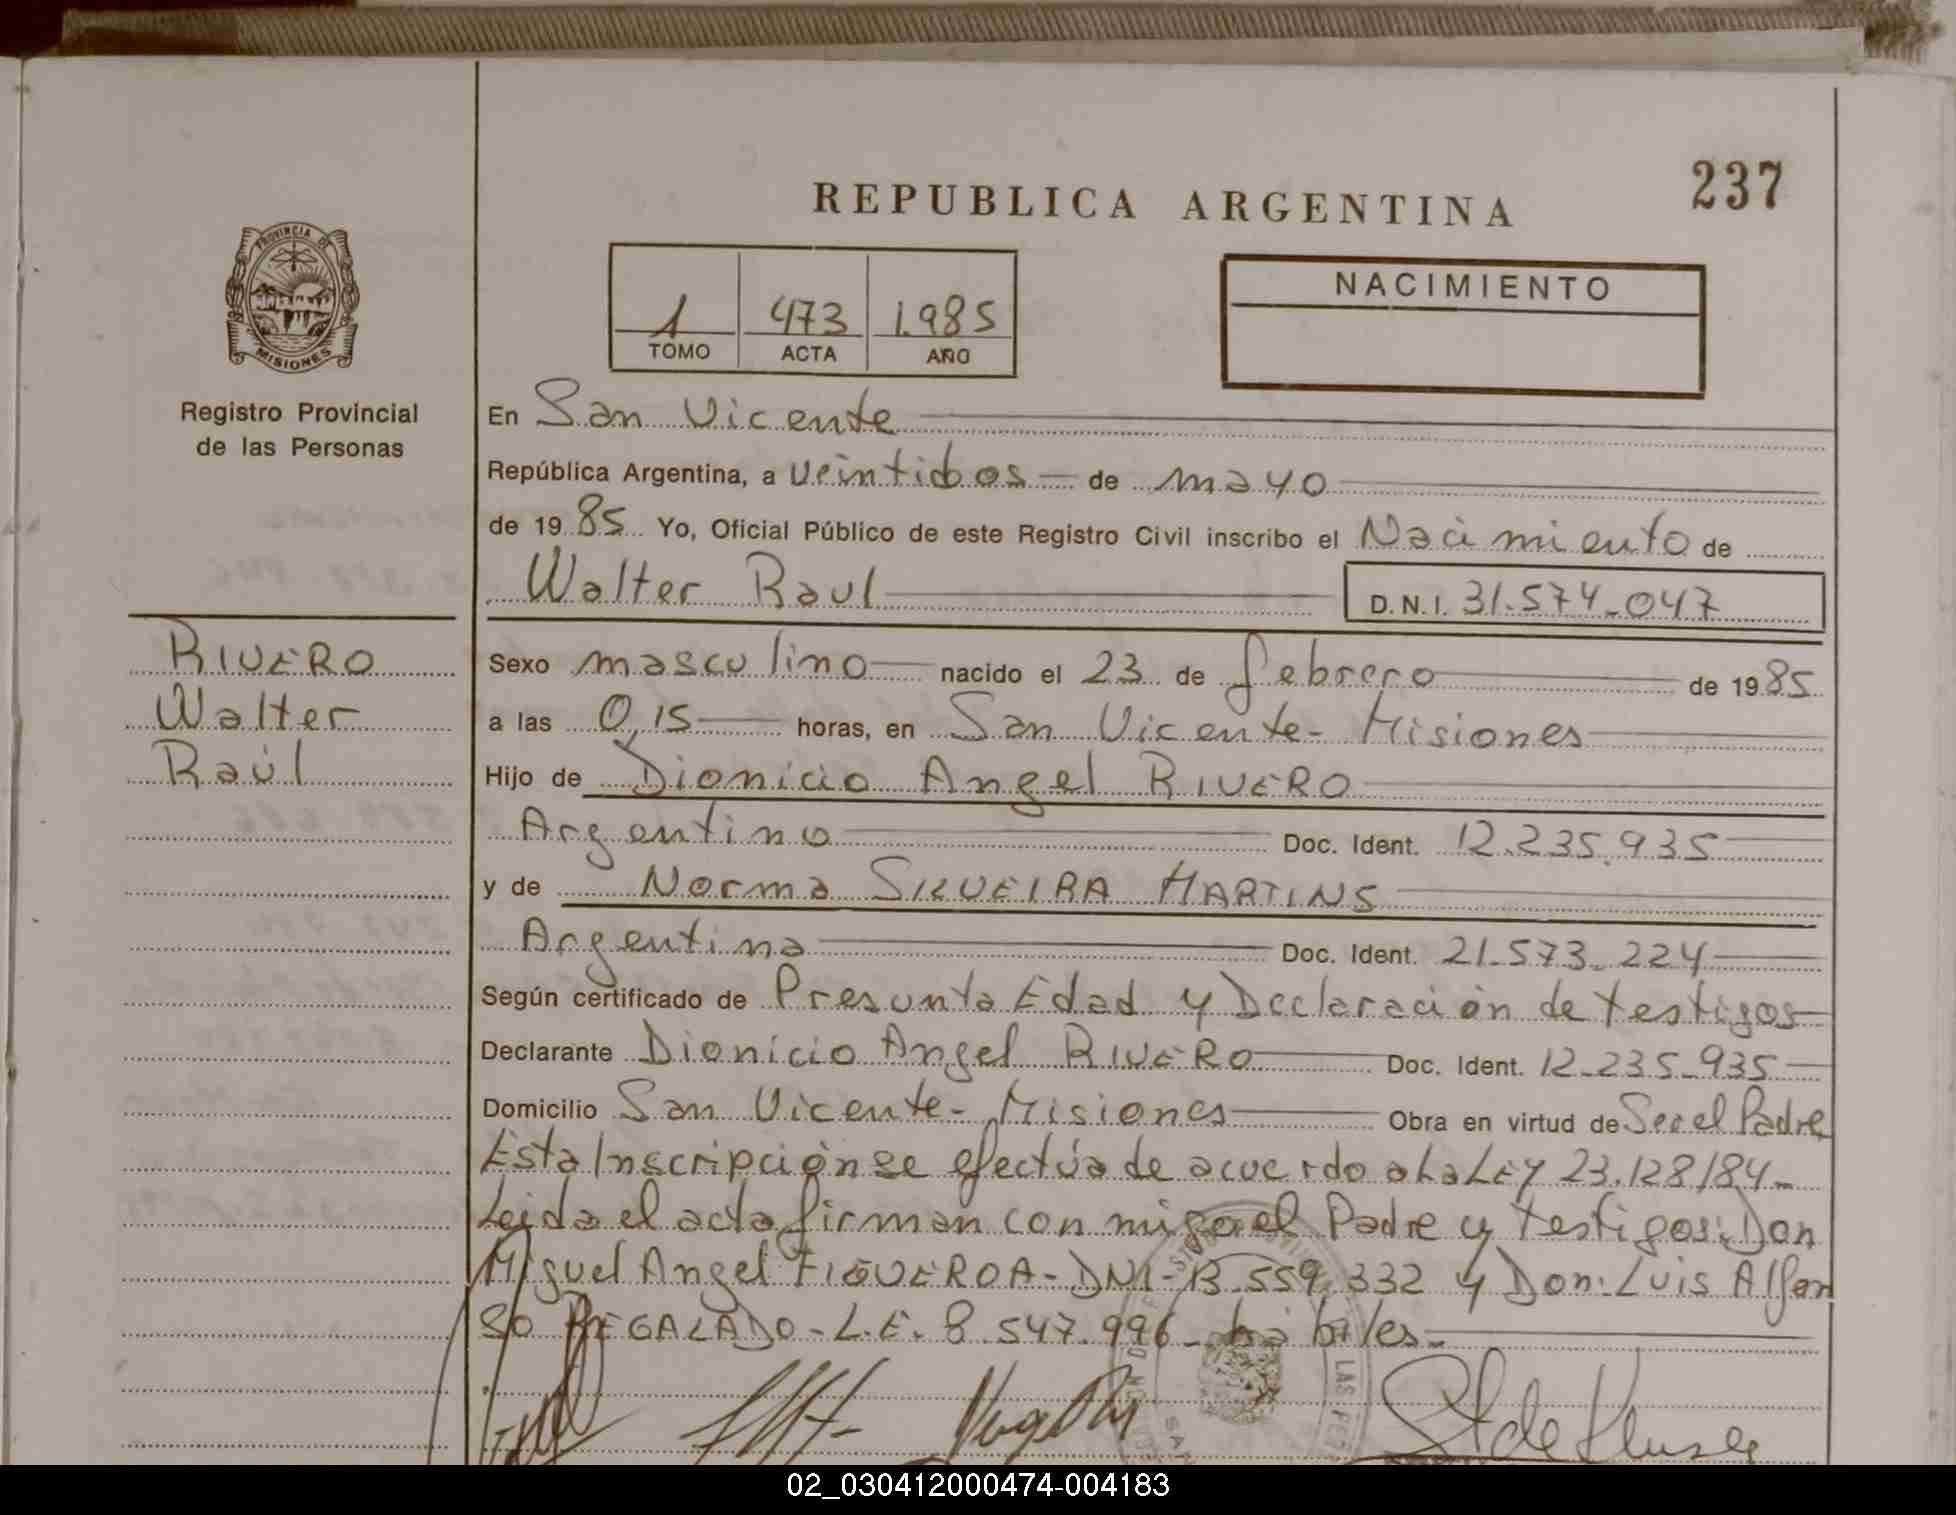 REPUBLICA ARGENTINA
237
PROVINCIA DE
MISIONES
Registro Provincial
de las Personas
1 473 1.985
TOMO ACTA AÑO
NACIMIENTO
En San Vicente
República Argentina, a veintidos de mayo
de 1985 Yo, Oficial Público de este Registro Civil inscribo el Nacimiento de
Walter Raul D.N.I. 31.574.047
RIVERO
Walter
Raúl
Sexo masculino nacido el 23 de febrero de 1985
a las 0,15 horas, en San Vicente - Misiones
Hijo de Dionicio Angel RIVERO
Argentino Doc. Ident. 12.235.935
y de Norma SILVEIRA MARTINS
Argentina Doc. Ident. 21.573.224
Según certificado de Presunta Edad y Declaración de testigos
Declarante Dionicio Angel RIVERO Doc. Ident. 12.235.935
Domicilio San Vicente - Misiones Obra en virtud de Ser el Padre
Esta Inscripción se efectúa de acuerdo a La LEY 23.128/84-
Leida el acta firman con migo el Padre y testigos: Don
Miguel Angel FIGUEROA - DNI - 13.559.332 y Don: Luis Alfon
so REGALADO - L.E. 8.547.996 - hábiles -
LAS PE
02_030412000474-004183